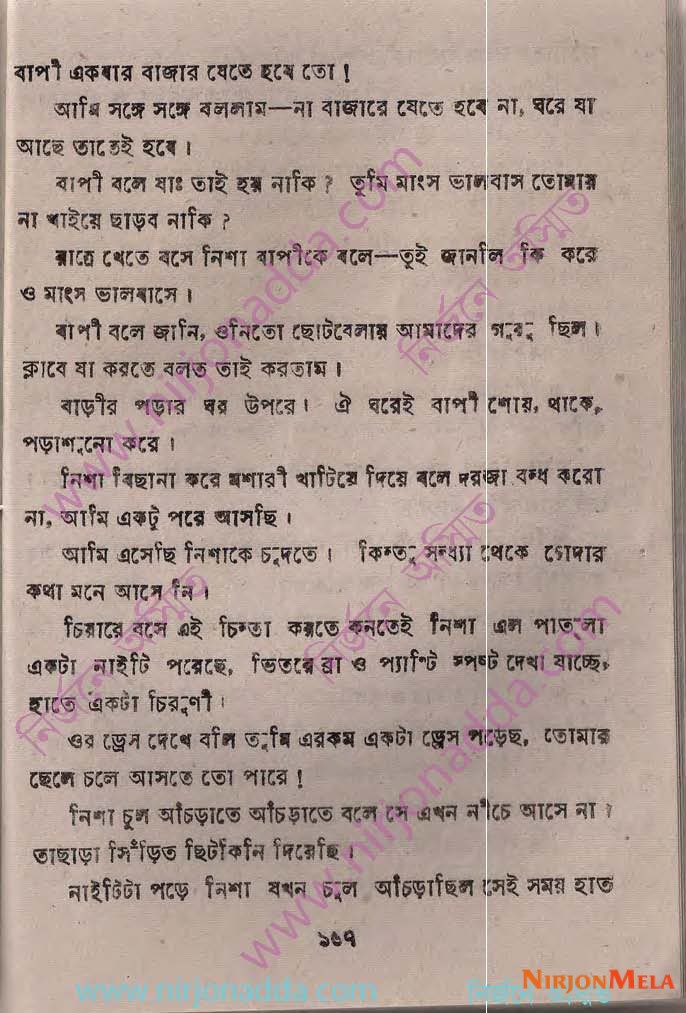 বাপী একবার বাজার যেতে হবে তো !
আমি সঙ্গে সঙ্গে বললাম—না বাজারে যেতে হবে না, ঘরে যা
আছে তাতেই হবে ।
বাপী বলে যাঃ তাই হয় নাকি ? তুমি মাংস ভালবাস তোমায়
না খাইয়ে ছাড়ব নাকি ?
রাত্রে খেতে বসে নিশা বাপীকে বলে—তুই জানলি কি করে
ও মাংস ভালবাসে ।
বাপী বলে জানি, ওনিতো ছোটবেলায় আমাদের গুরু ছিল ।
ক্লাবে যা করতে বলত তাই করতাম ।
বাড়ীর পড়ার ঘর উপরে । ঐ ঘরেই বাপী শোয়, থাকে,
পড়াশুনো করে ।
নিশা বিছানা করে মশারী খাটিয়ে দিয়ে বলে দরজা বন্ধ করো
না, আমি একটু পরে আসছি ।
আমি এসেছি নিশাকে চুদতে । কিন্তু সন্ধ্যা থেকে গোদার
কথা মনে আসে নি ।
চিয়ারে বসে এই চিন্তা করতে কনতেই নিশা এল পাতলা
একটা নাইটি পরেছে, ভিতরে ব্রা ও প্যান্টি স্পষ্ট দেখা যাচ্ছে,
হাতে একটা চিরুণী ।
ওর ড্রেস দেখে বলি তুমি এরকম একটা ড্রেস পড়েছ, তোমার
ছেলে চলে আসতে তো পারে !
নিশা চুল আঁচড়াতে আঁচড়াতে বলে সে এখন নীচে আসে না ?
তাছাড়া সিঁড়িত ছিটকিনি দিয়েছি ।
নাইটিটা পড়ে নিশা যখন চুল আঁচড়াচ্ছিল সেই সময় হাত
১৬৭
www.nirjonadda.com
নির্জনে অস্মিত
NIRJONMELA